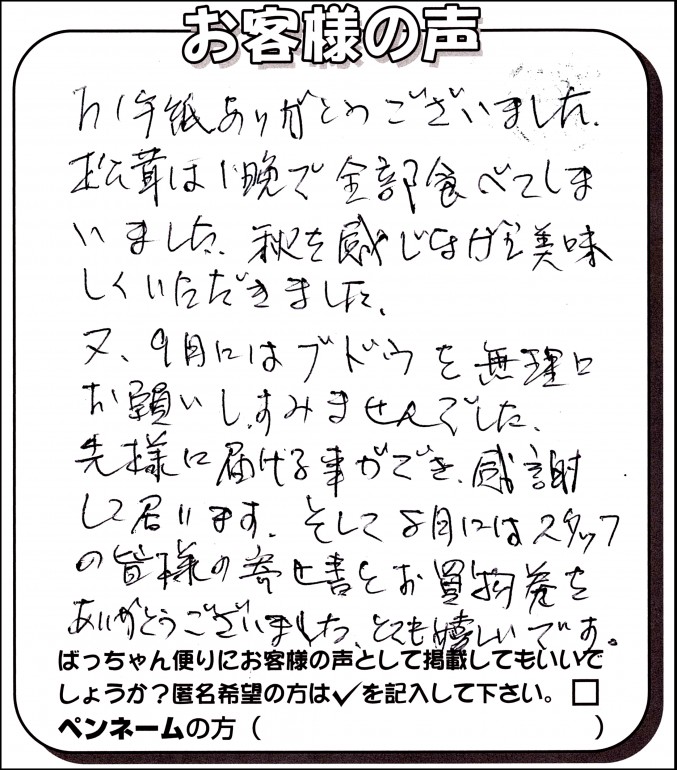 お客様の声
お手紙ありがとうございました。
松茸は1晩で全部食べてしま
いました。秋を感じながら美味
しくいただきました。
又、9月にはブドウを無理に
お願いし、すみませんでした。
先様に届ける事ができ、感謝
して居ります。そして5月にはスタッフ
の皆様の寄せ書とお買物券を
ありがとうございました。とても嬉しいです。
ばっちゃん便りにお客様の声として掲載してもいいで
しょうか？匿名希望の方は✓を記入して下さい。□
ペンネームの方（　　　　　　　　　　　　）